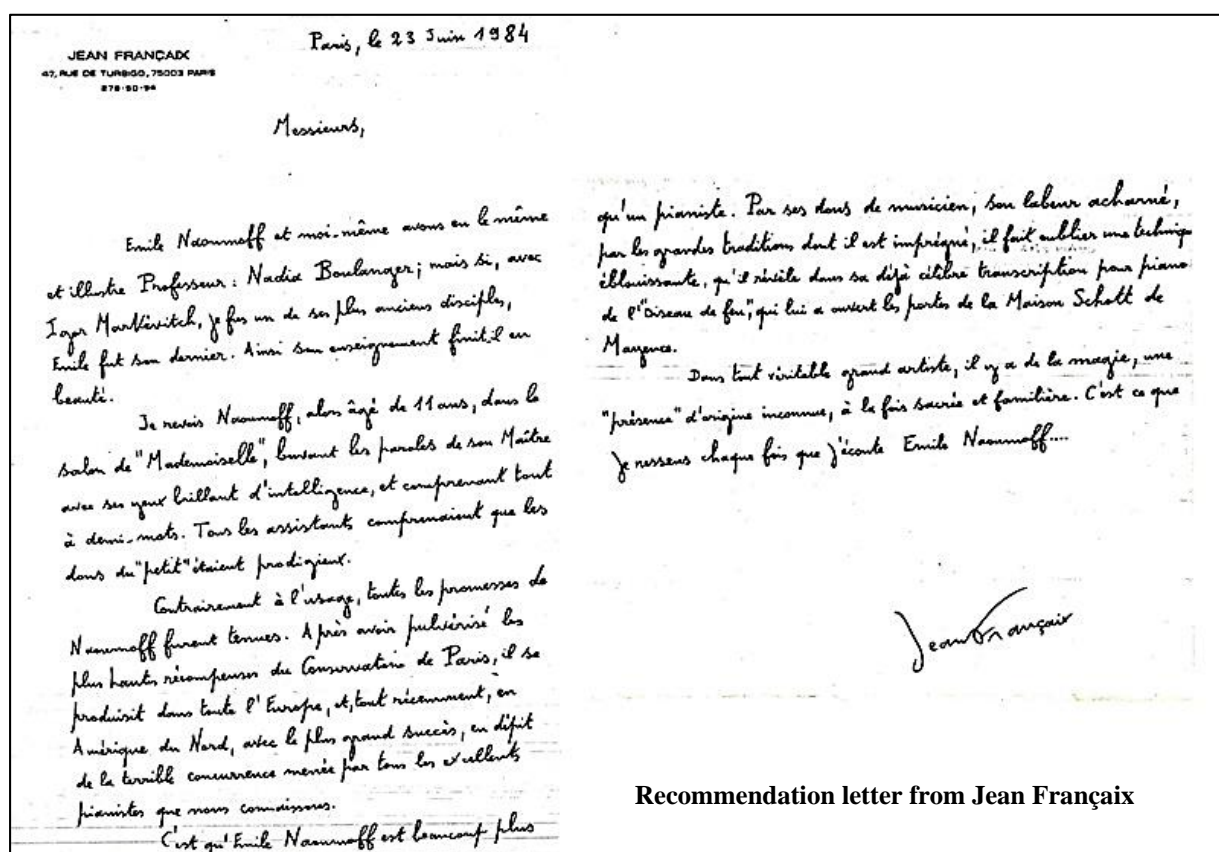 JEAN FRANÇAIX
47, RUE DE TURBIGO, 75003 PARIS
278-90-94
Paris, le 23 Juin 1984
Messieurs,
Emile Naoumoff et moi-même avons eu le même
et illustre Professeur : Nadia Boulanger ; mais si, avec
Igor Markévitch, je fus un de ses plus anciens disciples,
Emile fut son dernier. Ainsi son enseignement finit-il en
beauté.
Je revois Naoumoff, alors âgé de 11 ans, dans le
salon de "Mademoiselle", buvant les paroles de son Maître
avec ses yeux brillant d'intelligence, et comprenant tout
à demi-mots. Tous les assistants comprenaient que les
dons du "petit" étaient prodigieux.
Contrairement à l'usage, toutes les promesses de
Naoumoff furent tenues. Après avoir pulvérisé les
plus hautes récompenses du Conservatoire de Paris, il se
produisit dans toute l'Europe, et, tout récemment, en
Amérique du Nord, avec le plus grand succès, en dépit
de la terrible concurrence menée par tous les excellents
pianistes que nous connaissons.
C'est qu'Emile Naoumoff est beaucoup plus
qu'un pianiste. Par ses dons de musicien, son labeur acharné,
par les grandes traditions dont il est imprégné, il fait oublier une technique
éblouissante, qu'il révèle dans sa déjà célèbre transcription pour piano
de l'"Oiseau de feu", qui lui a ouvert les portes de la Maison Schott de
Mayence.
Dans tout véritable grand artiste, il y a de la magie, une
"présence" d'origine inconnue, à la fois sacrée et familière. C'est ce que
je ressens chaque fois que j'écoute Emile Naoumoff....
Jean Françaix
Recommendation letter from Jean Françaix